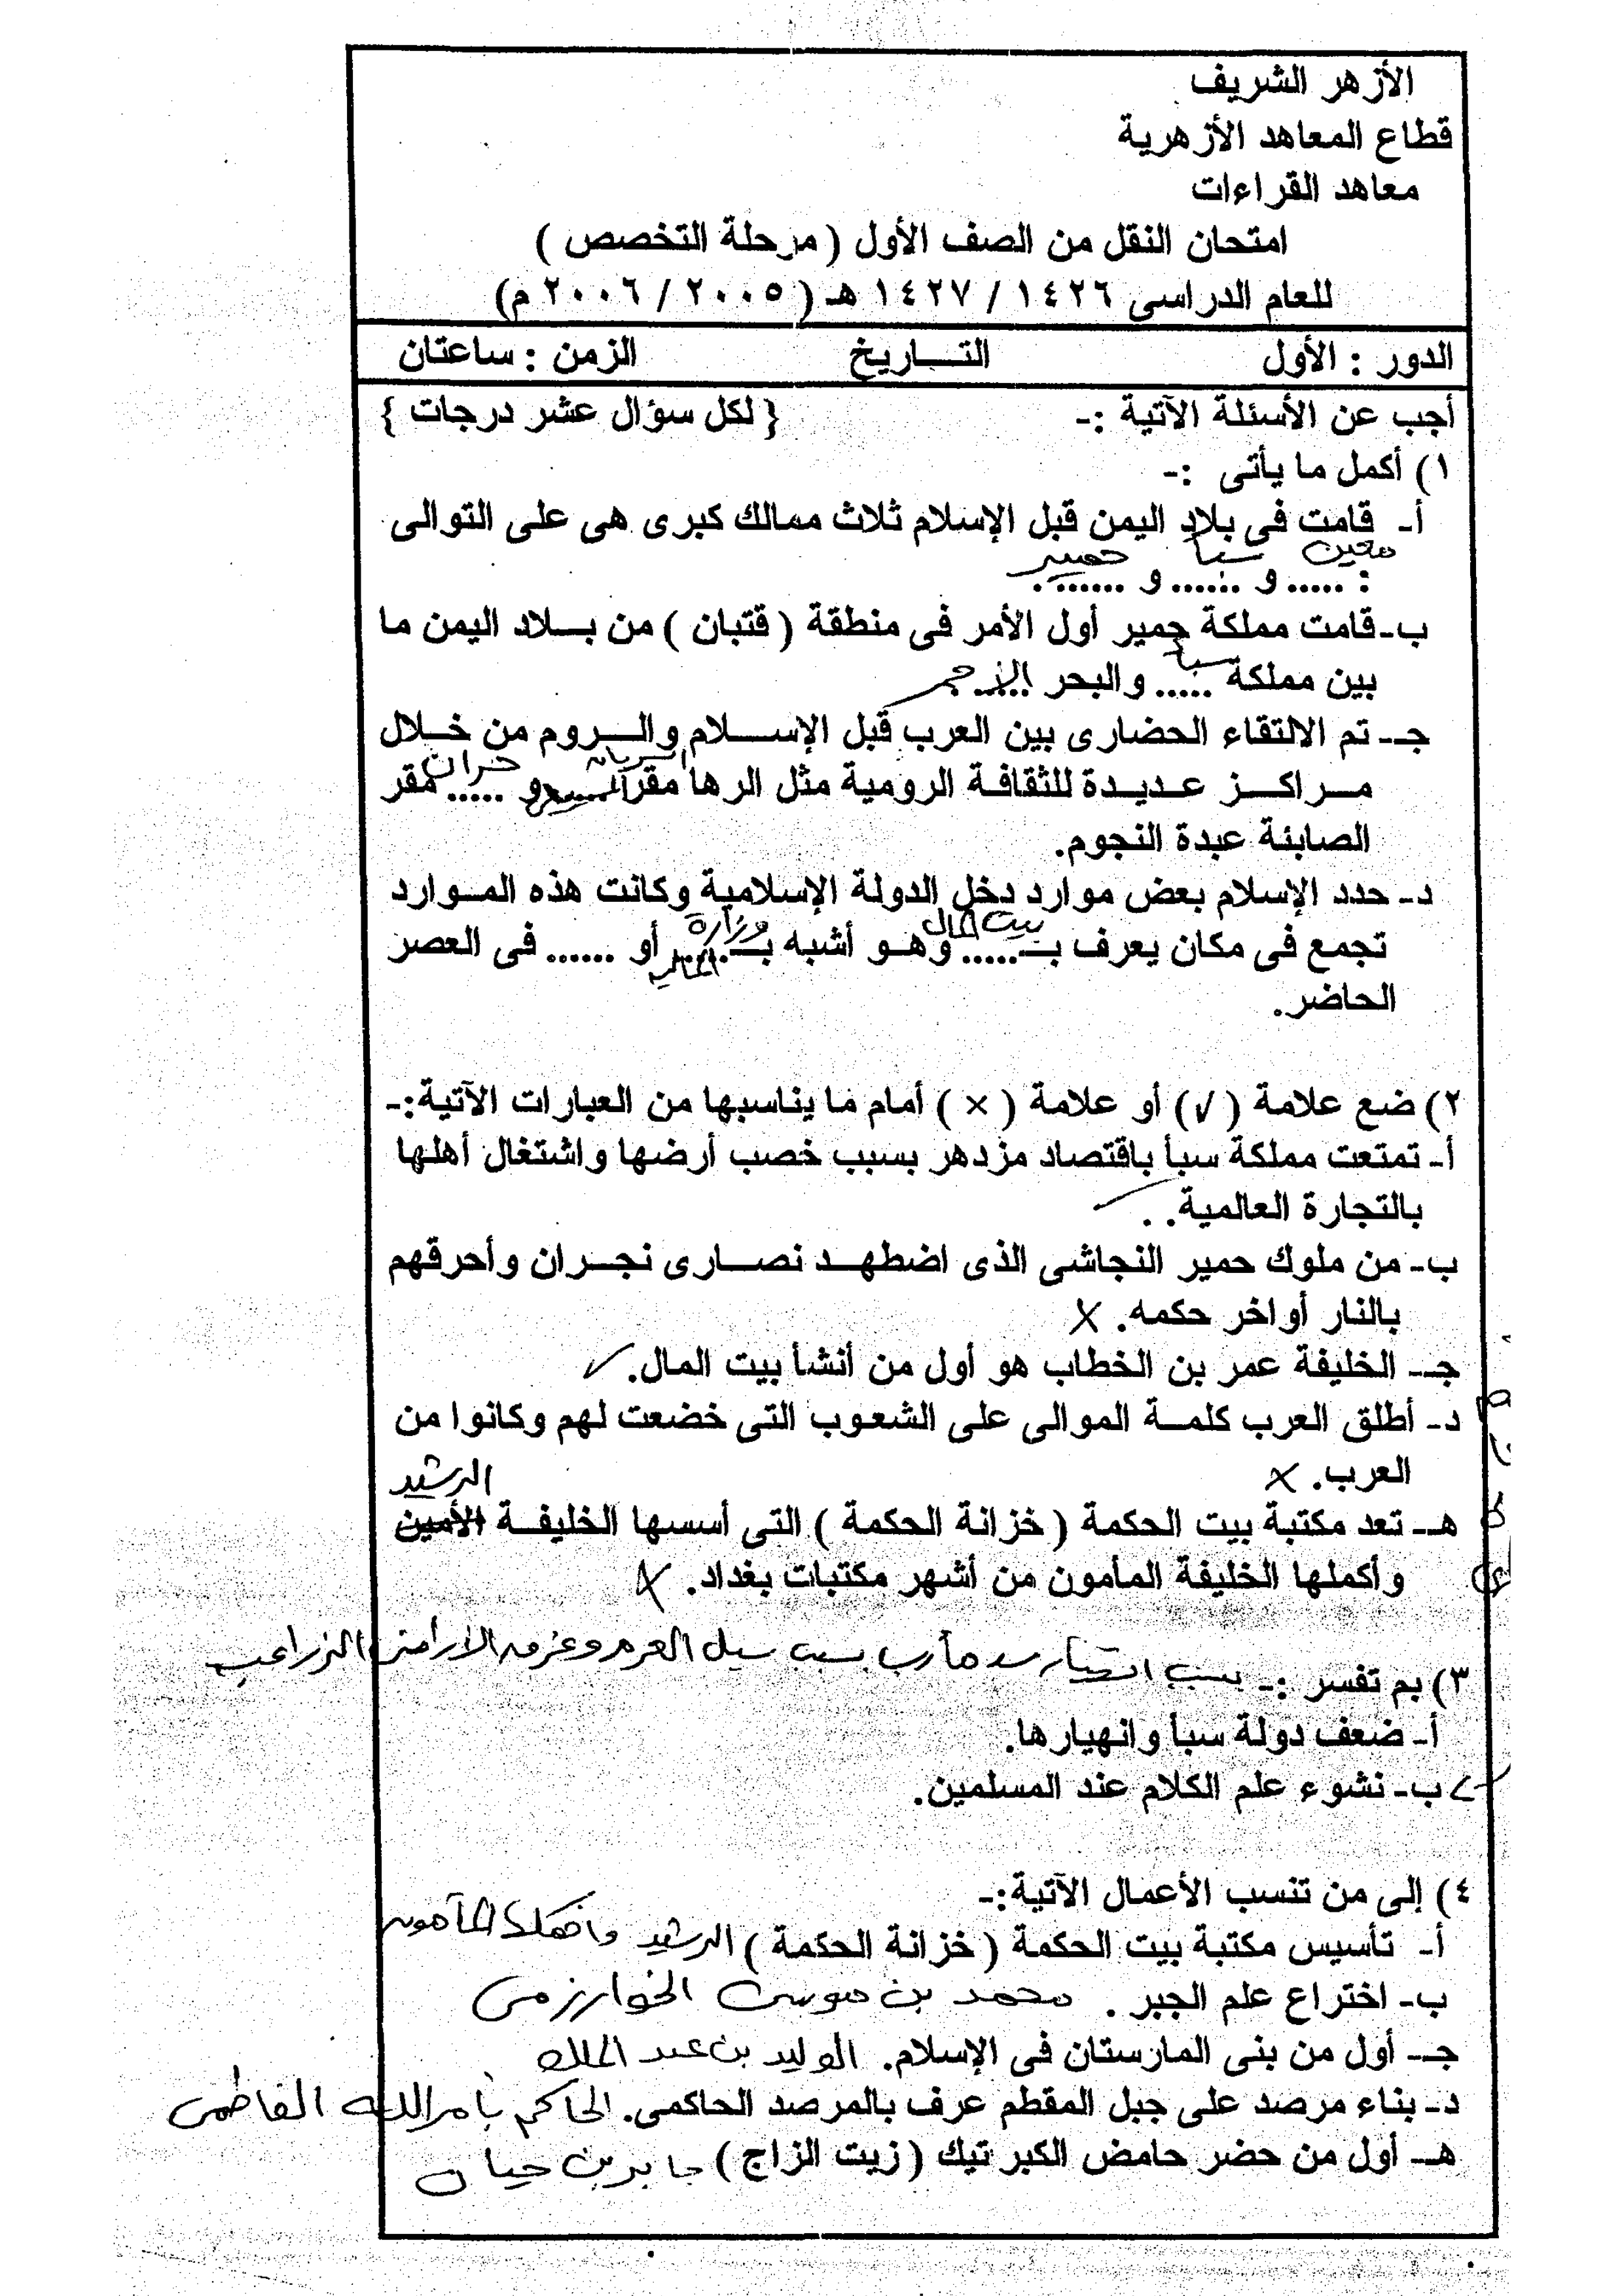 الأزهر الشريف
قطاع المعاهد الأزهرية
معاهد القراءات
امتحان النقل من الصف الأول ( مرحلة التخصص )
للعام الدراسى ١٤٢٦ / ١٤٢٧ هـ ( ٢٠٠٥ / ٢٠٠٦ م)
الدور : الأول التـــاريخ الزمن : ساعتان
أجب عن الأسئلة الآتية :- { لكل سؤال عشر درجات }
١) أكمل ما يأتى :-
أ- قامت فى بلاد اليمن قبل الإسلام ثلاث ممالك كبرى هى على التوالى
معين سبأ حمير
: ..... و ...... و ........
ب- قامت مملكة حمير أول الأمر فى منطقة ( قتبان ) من بـــلاد اليمن ما
سبأ
بين مملكة ..... والبحر ...... الأحمر
جــ- تم الالتقاء الحضارى بين العرب قبل الإســـلام والـــروم من خـــلال
السريان حران
مـــراكـــز عـديـدة للثقافـة الرومية مثل الرها مقرا ..... و ..... مقر
الصابئة عبدة النجوم.
د- حدد الإسلام بعض موارد دخل الدولة الإسلامية وكانت هذه المـوارد
بيت المال وزارة
تجمع فى مكان يعرف بـ ..... وهـو أشبه بـ ..... أو ...... فى العصر
المالية
الحاضر.
٢) ضع علامة ( √) أو علامة ( × ) أمام ما يناسبها من العبارات الآتية:-
أ- تمتعت مملكة سبأ باقتصاد مزدهر بسبب خصب أرضها واشتغال أهلها
بالتجارة العالمية. . ✓
ب- من ملوك حمير النجاشى الذى اضطهـــد نصـــارى نجـــران وأحرقهم
بالنار أواخر حكمه. ×
جــ- الخليفة عمر بن الخطاب هو أول من أنشأ بيت المال. ✓
د- أطلق العرب كلمـــة الموالى على الشعوب التى خضعت لهم وكانوا من
العرب. × الرشيد
هــ- تعد مكتبة بيت الحكمة ( خزانة الحكمة ) التى أسسها الخليفــة الأمين
وأكملها الخليفة المأمون من أشهر مكتبات بغداد. ×
بسبب انهيار سد مأرب بسبب سيل العرم وغرق الأراضى الزراعية
٣) بم تفسر :-
أ- ضعف دولة سبأ وانهيارها.
ب- نشوء علم الكلام عند المسلمين.
٤) إلى من تنسب الأعمال الآتية:-
أ- تأسيس مكتبة بيت الحكمة ( خزانة الحكمة ) الرشيد وأكملها المأمون
ب- اختراع علم الجبر . محمد بن موسى الخوارزمى
جــ- أول من بنى المارستان فى الإسلام. الوليد بن عبد الملك
د- بناء مرصد على جبل المقطم عرف بالمرصد الحاكمى. الحاكم بأمر الله الفاطمى
هــ- أول من حضر حامض الكبر تيك (زيت الزاج ) جابر بن حيان